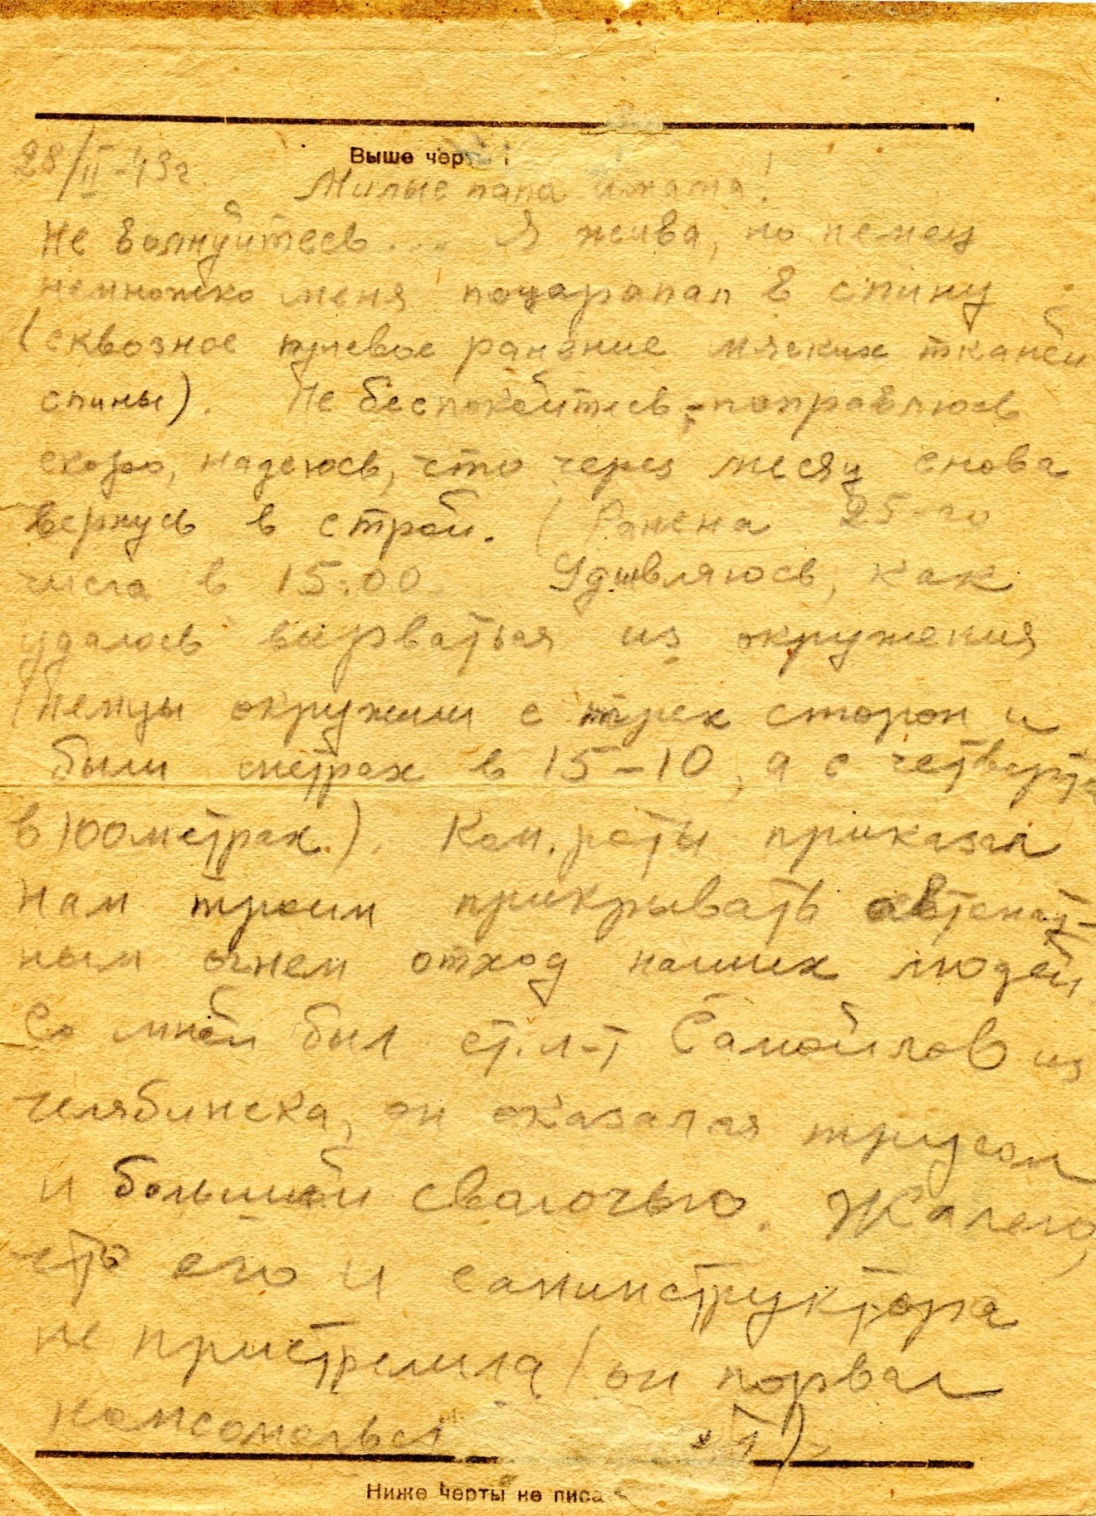 Выше черт
28/II-43г.
Милые папа и мама!
Не волнуйтесь... Я жива, но немец
немножко меня поцарапал в спину
(сквозное пулевое ранение мягких тканей
спины). Не беспокойтесь, - поправлюсь
скоро, надеюсь, что через месяц снова
вернусь в строй. (Ранена 25-го
числа в 15.00. Удивляюсь, как
удалось вырваться из окружения
(немцы окружили с трех сторон и
были метрах в 15-10, а с четверт
в 100 метрах). Ком. роты приказал
нам троим прикрывать автомат-
ным огнем отход наших людей
Со мной был ст. л-т Самойлов из
Челябинска, он оказался трусом
и большой сволочью. Жалею,
что его и санинструктора
не пристрелила (он порвал
комсомольск
Ниже черты не писа